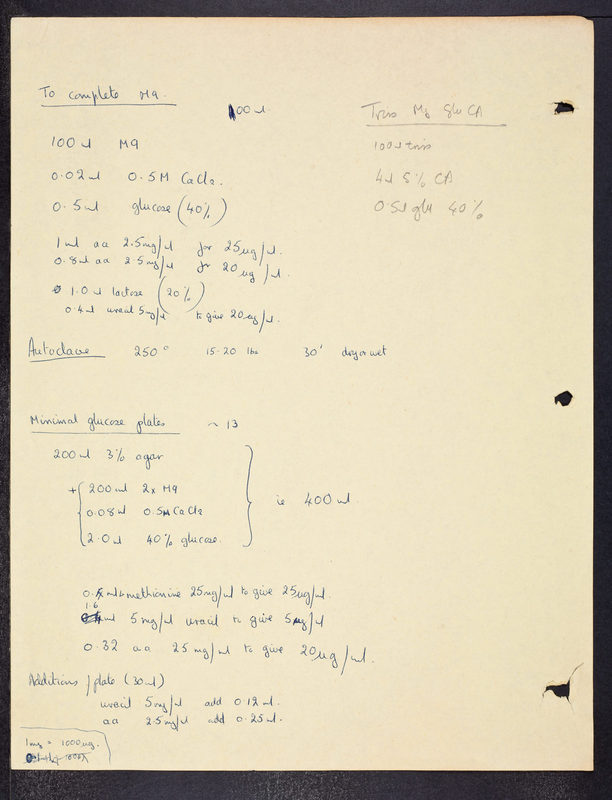 To complete M9.
100 ml
100 ml M9
0.02 ml 0.5M CaCl2.
0.5 ml glucose (40%)
1 ml aa 2.5mg/ml for 25ug/ml.
0.8 ml aa 2.5mg/ml for 20ug/ml.
1.0 ml lactose (20%)
0.4 ml uracil 5mg/ml to give 20ug/ml.
Tris Mg Glu CA
100 ml tris
4ml 5% CA
0.5ml glu 40%
Autoclave 250° 15-20 lbs 30' dry or wet
Minimal glucose plates ~ 13
200 ml 3% agar
+ 200 ml 2x M9
0.08 ml 0.5M CaCl2
2.0 ml 40% glucose.
ie 400 ml.
methionine 25mg/ml to give 25ug/ml.
1.6 ml 5mg/ml uracil to give 5ug/ml
0.32 aa 25mg/ml to give 20ug/ml.
Additions / plate (30 ml)
uracil 5mg/ml add 0.12 ml.
aa 2.5mg/ml add 0.25 ml.
1mg = 1000ug.